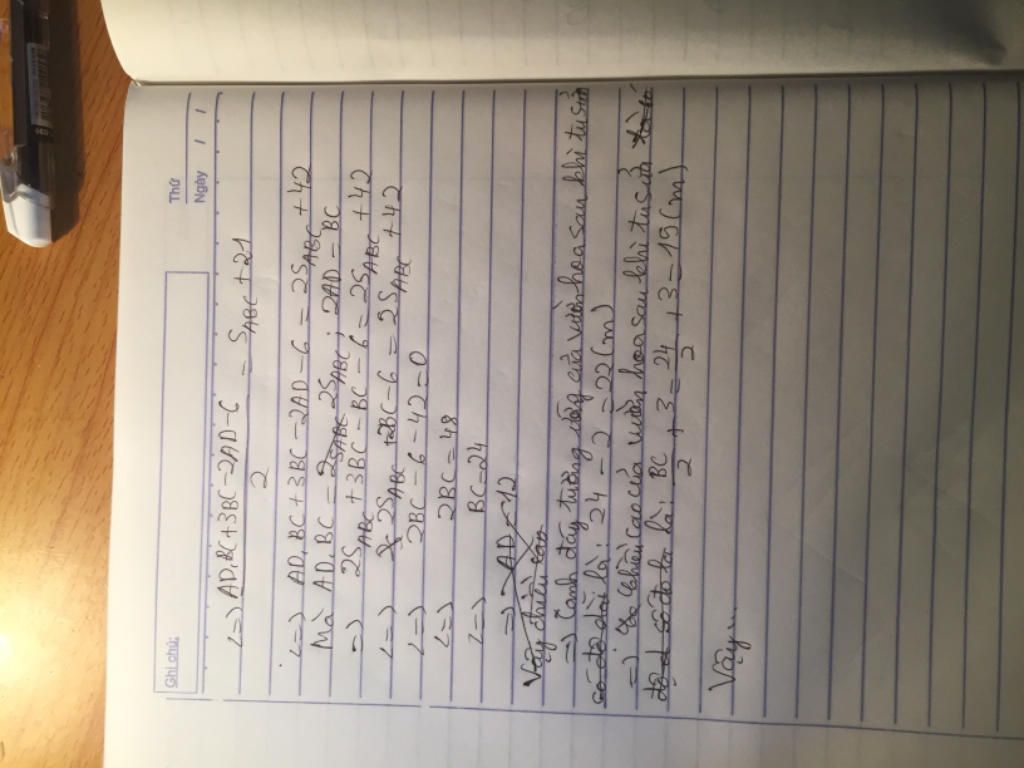 Thứ
Ngày / /
Ghi chú:
<=> AD.BC+3BC-2AD-6 / 2 = S_ABC + 21
<=> AD.BC+3BC-2AD-6 = 2S_ABC + 42
Mà AD.BC = 2S_ABC ; 2AD = BC
=> 2S_ABC + 3BC - BC - 6 = 2S_ABC + 42
<=> 2S_ABC + 2BC - 6 = 2S_ABC + 42
<=> 2BC - 6 - 42 = 0
<=> 2BC = 48
<=> BC = 24
=> AD = 12
Vậy chiều cao
=> Cạnh đáy tương ứng của vườn hoa sau khi tu sửa
có độ dài là: 24 - 2 = 22 (m)
=> Chiều cao của vườn hoa sau khi tu sửa
là: BC/2 + 3 = 24/2 + 3 = 15 (m)
Vậy...